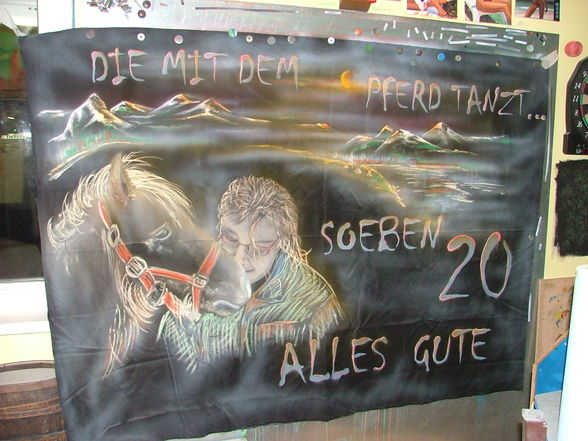 DIE MIT DEM PFERD TANZT...
SOEBEN 20
ALLES GUTE